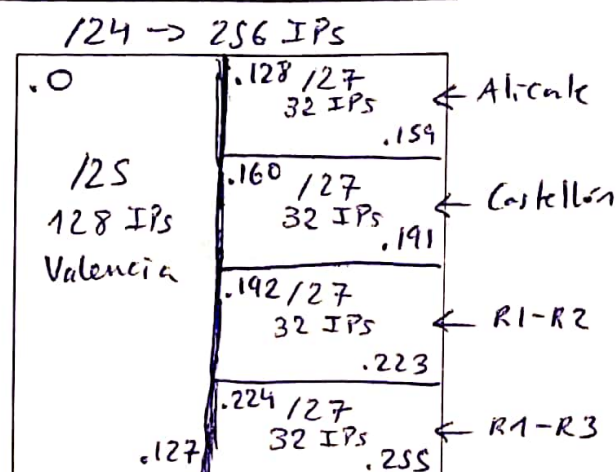 /24 → 256 IPs
.0
/25
128 IPs
Valencia
.127
.128 /27
32 IPs
.159
← Alicante
.160 /27
32 IPs
.191
← Castellón
.192/27
32 IPs
.223
← R1-R2
.224 /27
32 IPs
.255
← R1-R3